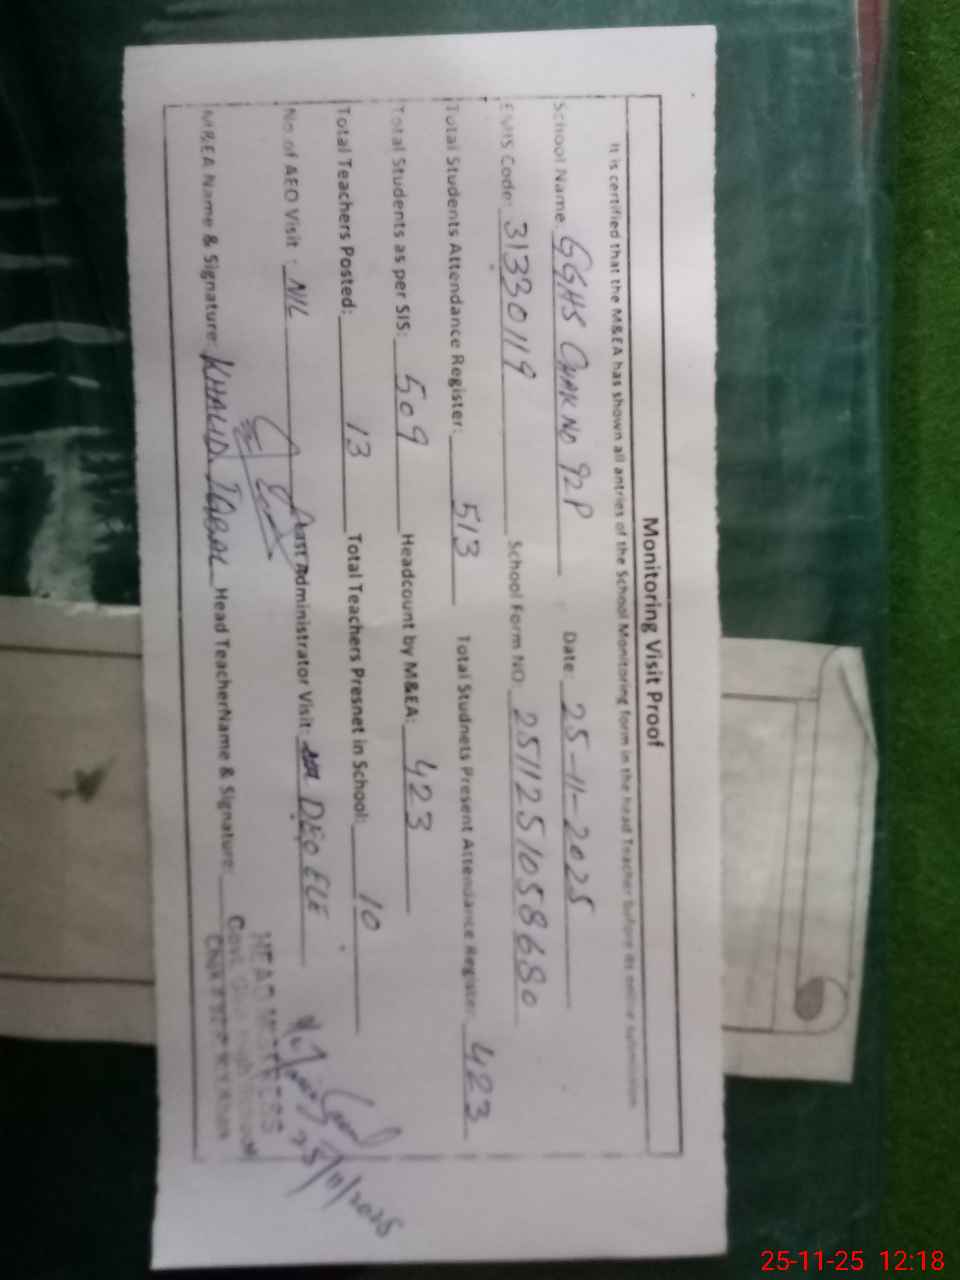 Monitoring Visit Proof
It is certified that the M&EA has shown all antries of the School Monitoring form in the head Teacher before its online submission
School Name: GGHS CHAK NO 92P Date: 25-11-2025
EMIS Code: 31330119 School Form NO: 2511251058680
Total Students Attendance Register: 513 Total Studnets Present Attendance Register: 423
Total Students as per SIS: 509 Headcount by M&EA: 423
Total Teachers Posted: 13 Total Teachers Presnet in School: 10
No of AEO Visit : NIL Last Administrator Visit: DEO ELE
M&EA Name & Signature: KHALID IQBAL Head TeacherName & Signature:
25/11/2025
HEAD MISTRESS
Govt. Girls High School
25-11-25 12:18